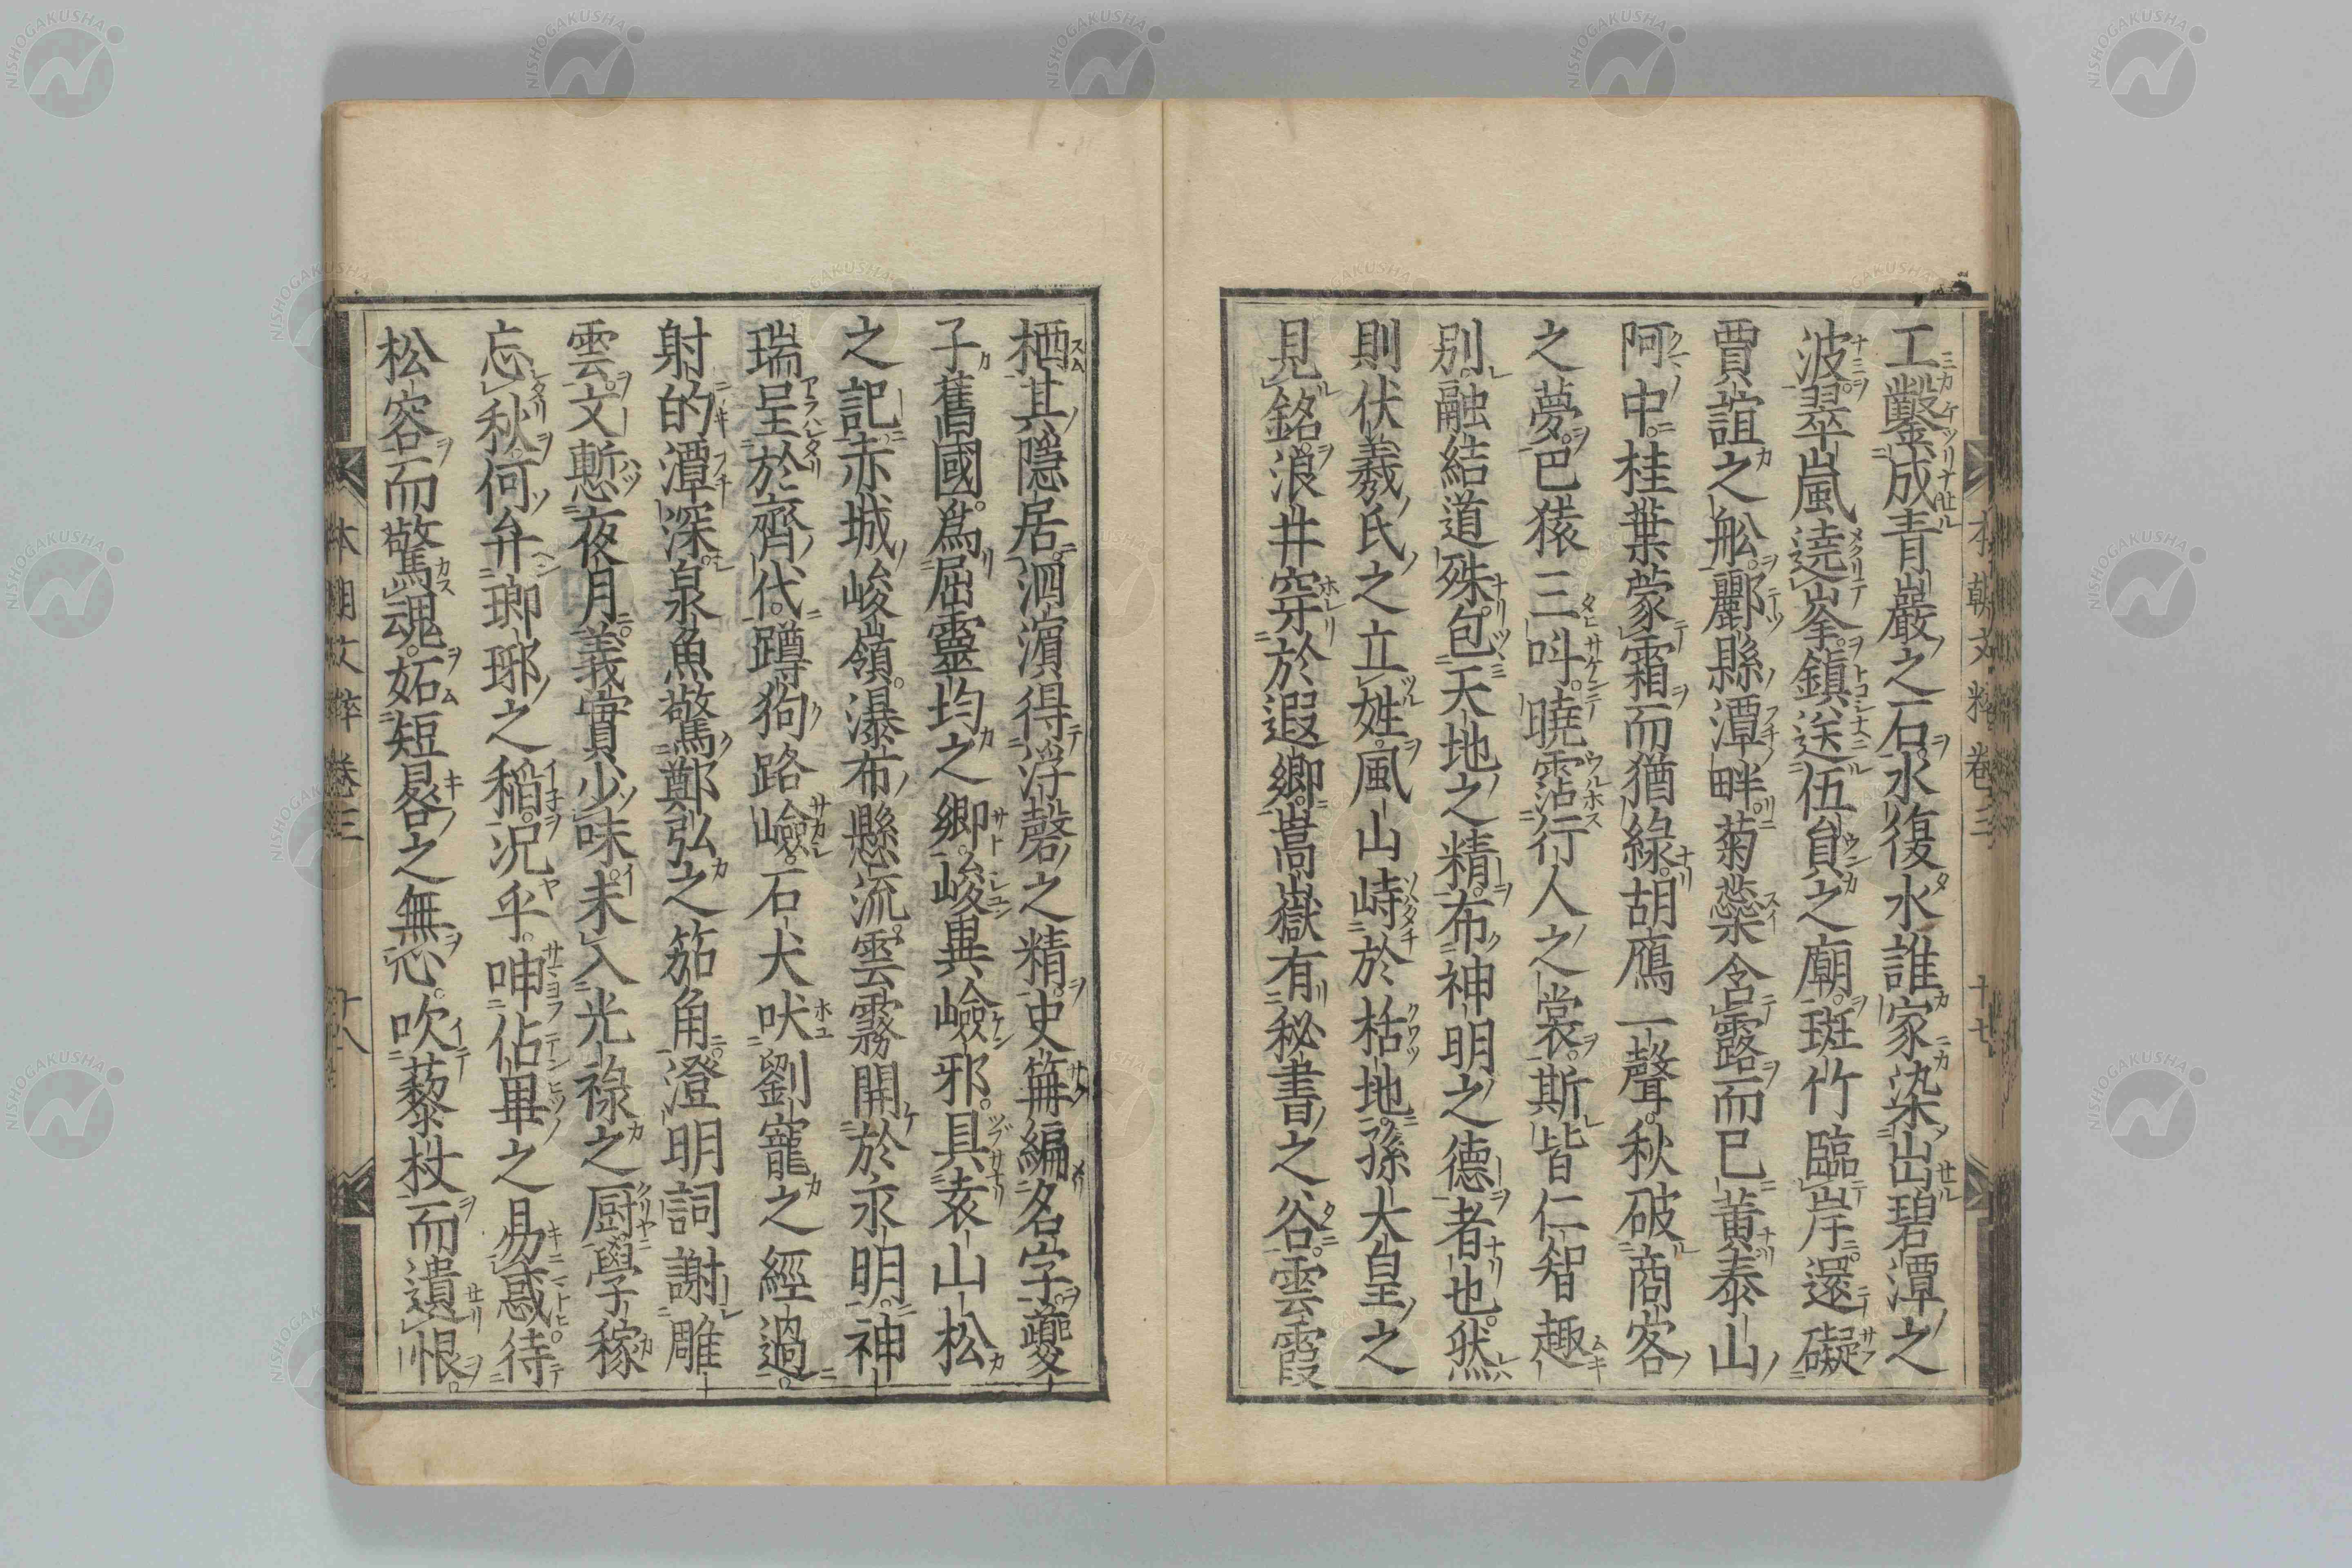 工鑿成青巖之石水復水誰家染出碧潭之
波翠嵐遶峯鎮送伍員之廟斑竹臨岸還礙
賈誼之舩酈縣潭畔菊蘂含露而已黃泰山
阿中桂葉蒙霜而猶緑胡鴈一聲秋破商客
之夢巴猿三叫曉霑行人之裳斯皆仁智趣
別融結道殊包天地之精布神明之德者也然
則伏羲氏之立姓風山峙於栝地孫大皇之
見銘浪井穿於遐鄉嵩嶽有秘書之谷雲霞
栖其隱居泗濱得浮磬之精史篇編名字夔
子舊國為屈靈均之鄉峻異嶮邪具袁山松
之記赤城峻嶺瀑布懸流雲霧開於永明神
瑞呈於齊代蹲狗路嶮石犬吠劉寵之經過
射的潭深泉魚驚鄭弘之笳角澄明詞謝雕
雲文慙夜月義實少味未入光祿之厨學稼
忘秋何弁瑯琊之稻况乎呻佔畢之易惑待
松容而驚魂妬短晷之無忘吹藜杖而遺恨
本朝文粹卷三 十七
本朝文粹卷三 十八